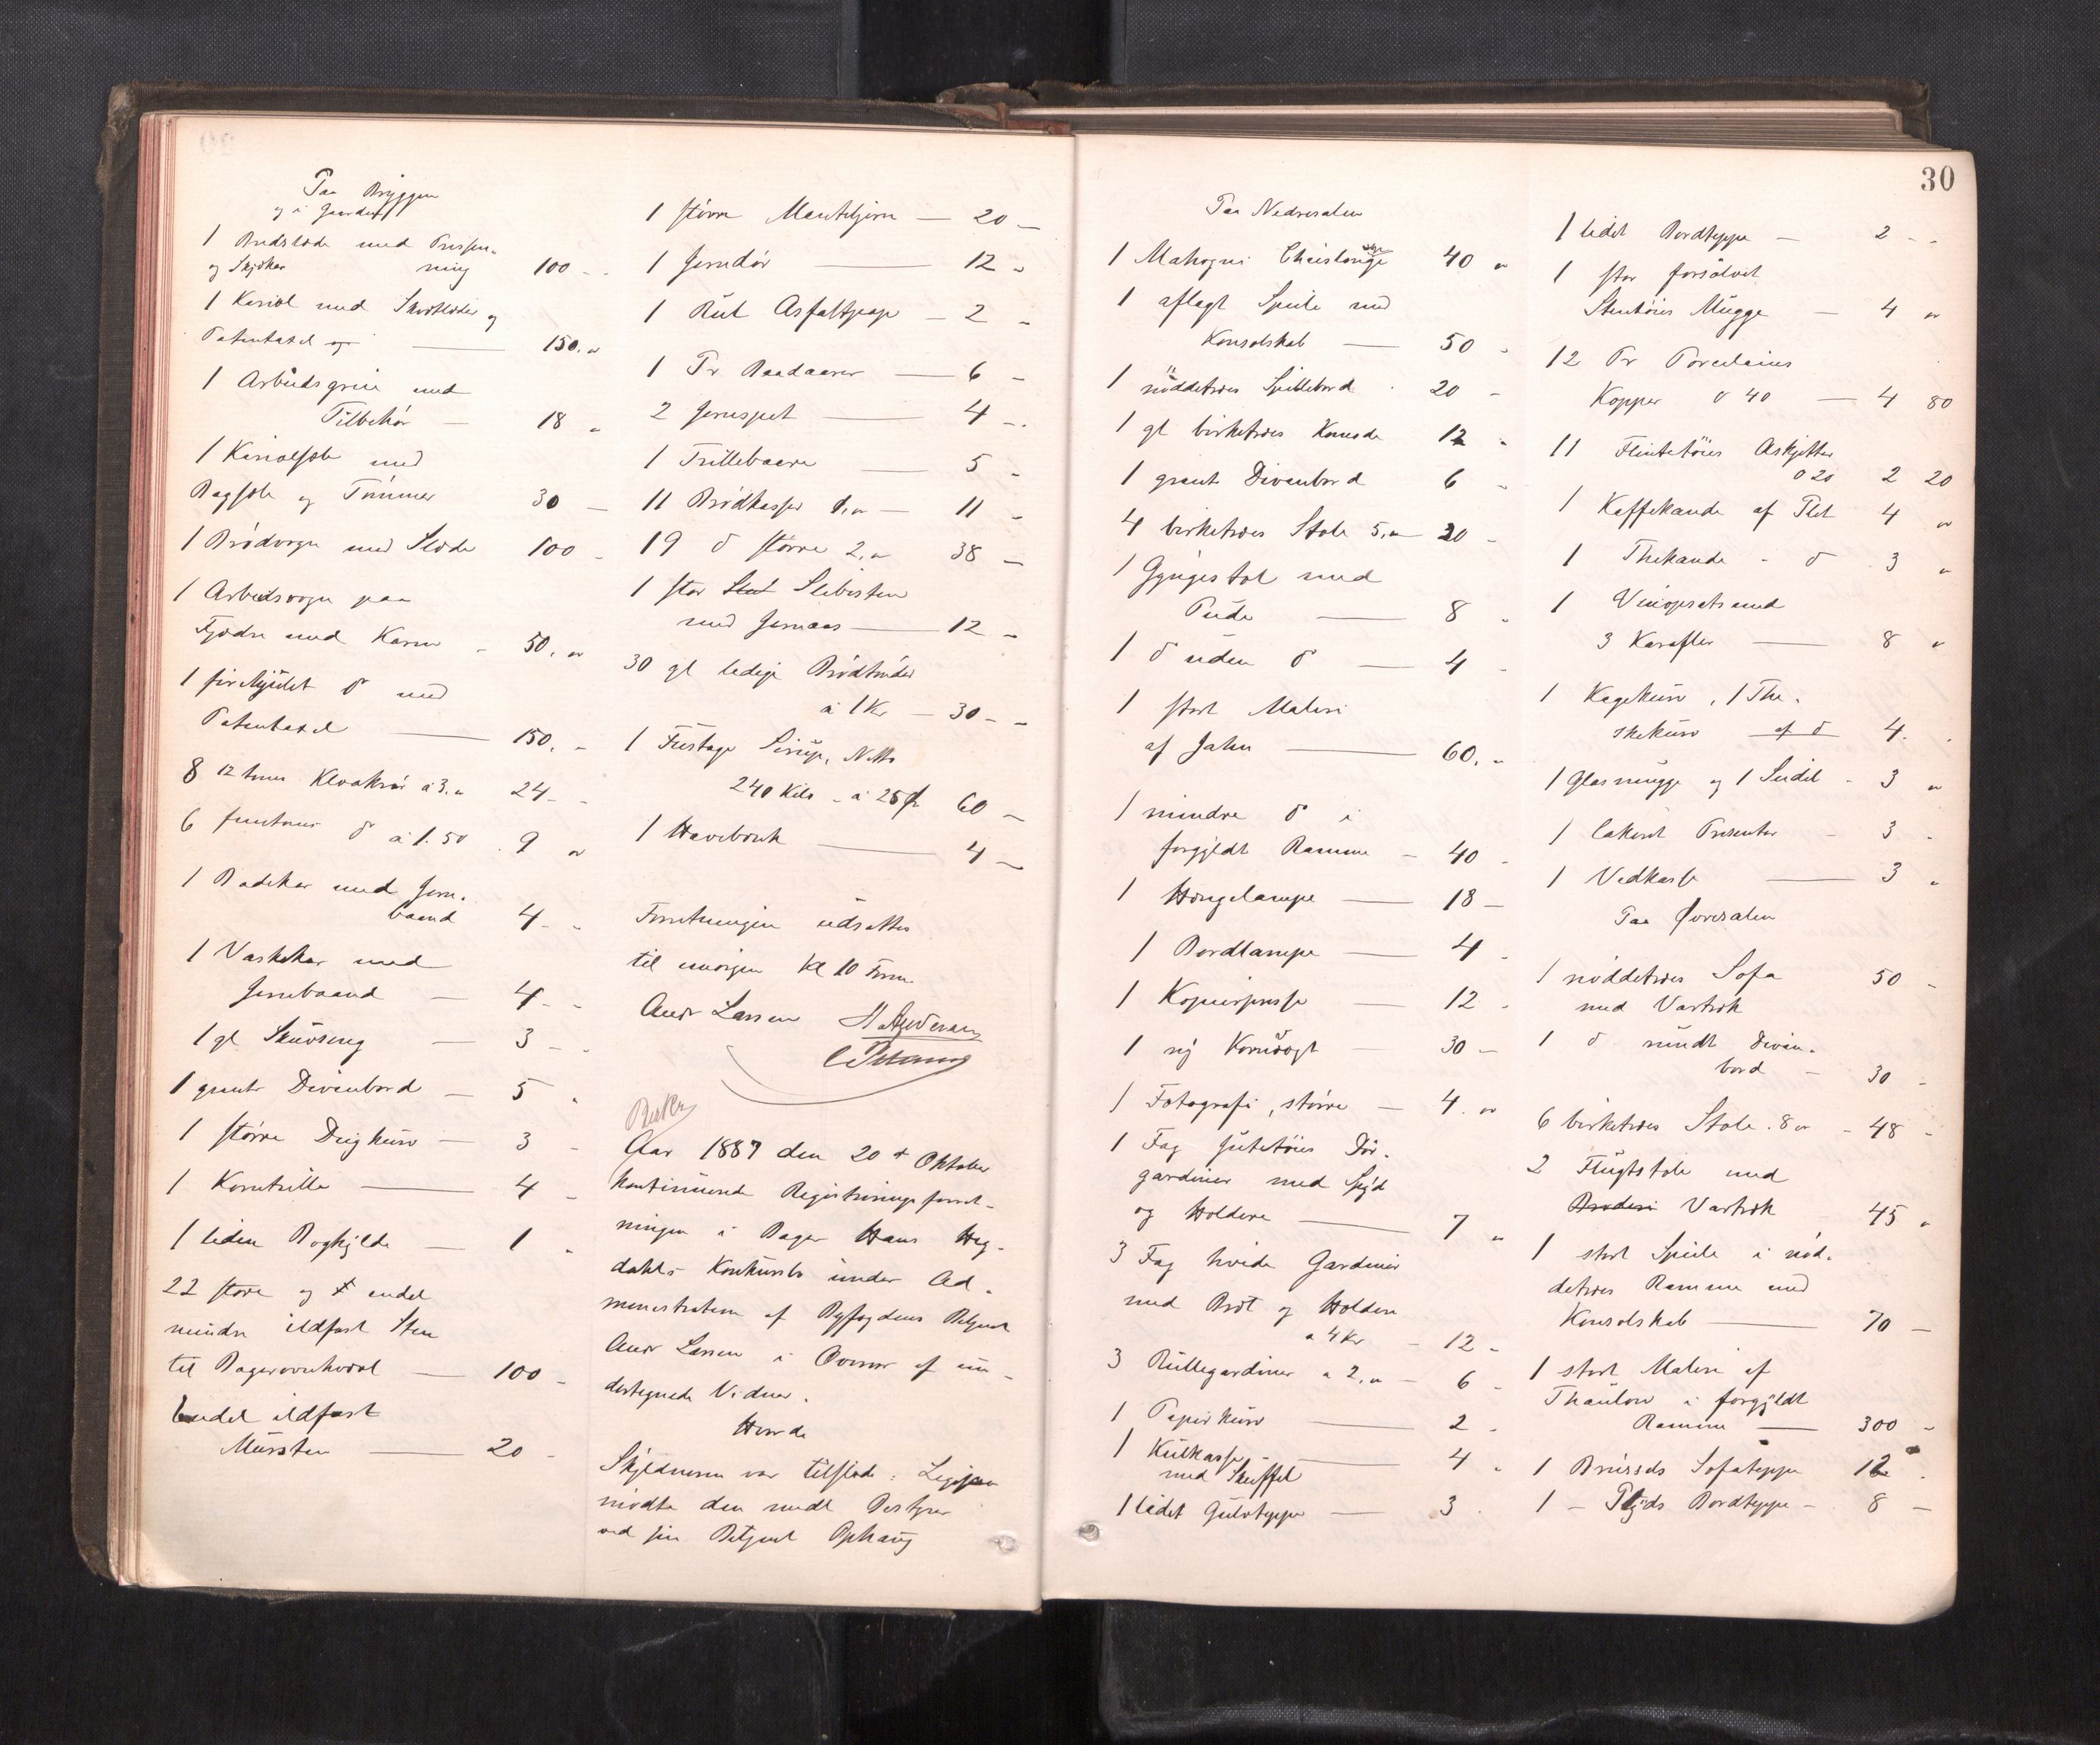 Paa Bryggen
og i Gaarden
1 Bredslæde med Presen-
og Skjæker ning 100 -
1 Kariol med Skrotslæder og
Patentaxel og — 150. "
1 Arbeidsgreie med
Tilbehør — 18 "
1 Kariolsæle med
Bagsæle og Tømmer 30 —
1 Brødvogn med Slæde 100 -
1 Arbeidsvogn paa
Fjædre med Karm - 50. "
1 firehjulet do med
Patentaxel — 150. -
8 12 toms Kloakrør a 3. " 24 - -
6 femtoms do a 1.50 . 9 "
1 Badekar med Jern-
baand 4 - -
1 Vaskekar med
Jernbaand — 4 - -
1 gl Skuvseng — 3 - -
1 grant Divanbord — 5 "
1 større Deigkurv — 3 -
1 Korntrille — 4 -
1 liden Boghylde — 1 "
22 store og endel
mindre ildfast Sten
til Bagerovnhvæl — 100 -
Endel ildfast
Mursten — 20 -
1 større Manteljern — 20 —
1 Jerndør — 12 -
1 Rul Asfaltpap — 2 -
1 Pr Baadaarer — 6 -
2 Jernspet — 4 -.
1 Trillebaare — 5 -
11 Brødkasser 1. " — 11 -
19 do større 2. " 38 —
1 stor Slibesten
med Jernaas — 12 -
30 gl ledige Brødtønder
à 1 Kr — 30 - -
1 Fustage Sirup, Netto
240 Kilo - à 25 Øre 60 —
1 Havebænk — 4 —
Forretningen udsattes
til imorgen Kl 10 Form.
Andr Larsen
Aar 1887 den 20de Oktober
kontinuerede Registreringsforret-
ningen i Bager Hans Heg-
dahls Konkursbo under Ad-
ministration af Byfogdens Betjent
Andr Larsen i Overvær af un-
dertegnede Vidner.
Hvorda
Skyldneren var tilstede. Ligesom
mødte den midl Bestyrer
ved sin Betjent Ophaug
30
Paa Nedresalen
1 Mahogni Chaislongue 40 "
1 aflagt Speile med
Konsolskab — 50 -
1 nøddetræes Spillebord . 20 -
1 gl birketræes Komode 12 "
1 grant Divanbord 6 -
4 birketræes Stole 5. " 20 -
1 Gyngestol med
Pude — 8 "
1 do uden do — 4 -
1 stort Maleri
af Jahn — 60. "
1 mindre do i
forgyldt Ramme — 40 -
1 Hængelampe — 18 —
1 Bordlampe — 4 -
1 Kopierpresse — 12 -
1 ny Kornvægt — 30 —
1 Fotografi, større — 4. "
1 Fag Jutetøies Dør-
gardiner med Spyd
og Holdere — 7 "
3 Fag hvide Gardiner
med Bræt og Holdere
a 4 Kr — 12 -
3 Rullegardiner a 2. " — 6 -
1 Papirkurv — 2 -
1 Kulkasse — 4 "
med Skuffel
1 lidet Gulvteppe — 3 .
1 lidet Bordteppe — 2 - -
1 stor forsølvet
Stentøies Mugge — 4 "
12 Pr Porcelains
Kopper a 40 — 4 80
11 Flintetøies Askjetter
a 20 2 20
1 Kaffekande af Plet 4 "
1 Thekande - do . 3 "
1 Vinopsats med
3 Karafler — 8 "
1 Kagekurv, 1 The-
skekurv af do 4.
1 Glasmugge og 1 Seidel - 3 "
1 lakeret Presenter - 3 -
1 Vedkasse — 3 "
Paa Øvresalen
1 nøddetræes Sofa 50 -
med Vartræk
1 do rundt Divan-
bord — 30 -
6 birketræes Stole . 8 " - 48 -
2 Flugtstole med
Broderi Vartræk 45 "
1 stort Speile i nød-
detræes Ramme med
Konsolskab — 70 —
1 stort Maleri af
Thaulow i forgyldt
Ramme — 300 -
1 Brüssels Sofateppe 12 .
1 — Plyds Bordteppe — 8 —